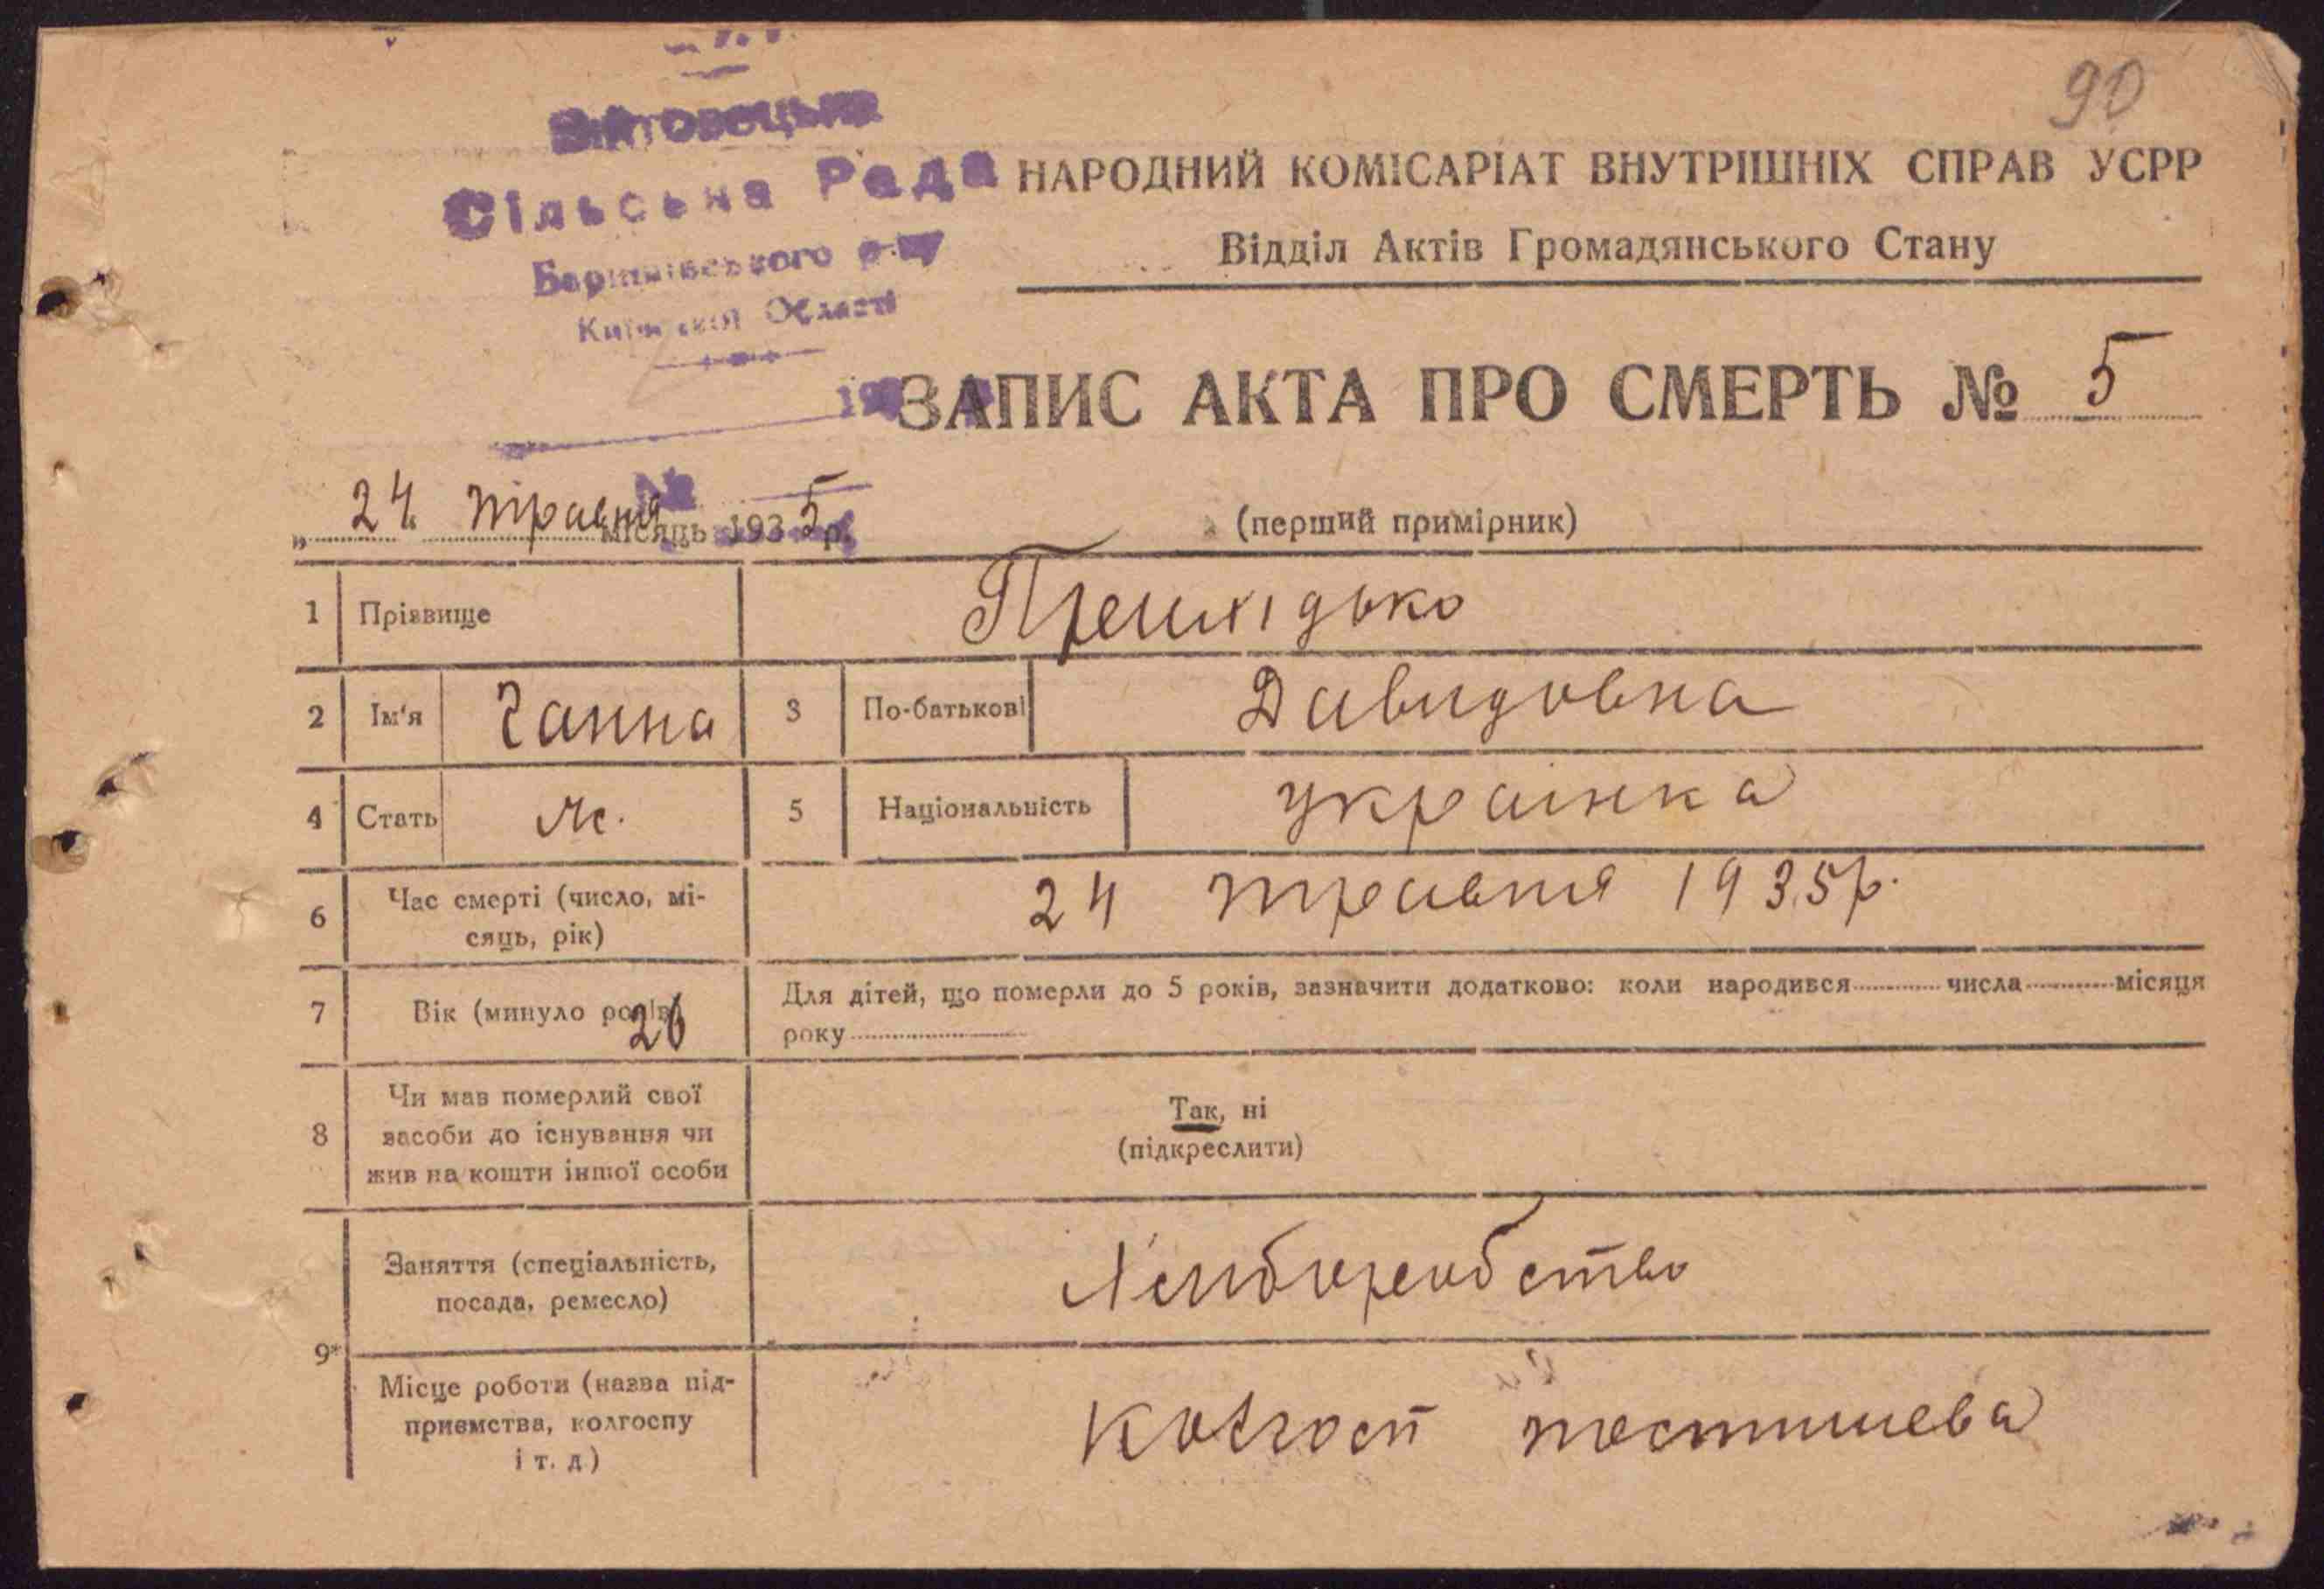 90
Війтовецька
Сільська Рада
Баришівського р-ну
Київської Області
НАРОДНИЙ КОМІСАРІАТ ВНУТРІШНІХ СПРАВ УСРР
Відділ Актів Громадянського Стану
ЗАПИС АКТА ПРО СМЕРТЬ № 5
193
№
„ 24 травня місяць 1935 р.
(перший примірник)
1 Прізвище
2 Ім'я Ганна 3 По-батькові Давидовна
4 Стать ж. 5 Національність украінка
6 Час смерті (число, мі-
сяць, рік) 24 травня 1935р.
7 Вік (минуло років) 26 Для дітей, що померли до 5 років, зазначити додатково: коли народився числа місяця
року
8 Чи мав померлий свої
засоби до існування чи
жив на кошти іншої особи
Так, ні
(підкреслити)
9*
Заняття (спеціальність,
посада, ремесло) Хліборобство
Місце роботи (назва під-
приємства, колгоспу
і т. д)
Колгосп постишева